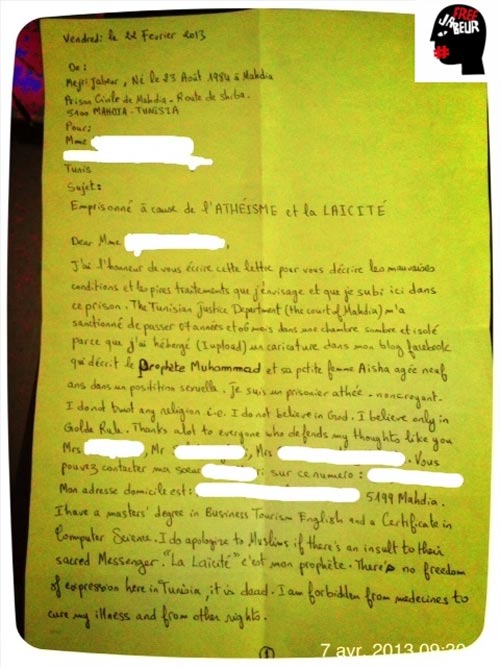 FREE
JABEUR
#
Vendredi le 22 Février 2013
De:
Mejri Jabeur, Né le 23 Août 1984 à Mahdia
Prison Civile de Mahdia - Route de Shiba.
5100 MAHDIA - TUNISIA
Pour:
Mme
Tunis
Sujet:
Emprisonné à cause de l'ATHÉISME et la LAICITÉ
Dear Mme ,
J'ai l'honneur de vous écrire cette lettre pour vous décrire les mauvaises
conditions et les pires traitements que j'envisage et que je subi ici dans
ce prison. The Tunisian Justice Department (the court of Mahdia) m'a
sanctionné de passer 07 années et 06 mois dans une chambre sombre et isolé
parce que j'ai hébergé (I upload) un caricature dans mon blog facebook
qui décrit le Prophète Muhammad et sa petite femme Aisha agée neuf
ans dans un position sexuelle. Je suis un prisonier athée - noncroyant.
I do not trust any religion i.e. I do not believe in God. I believe only in
Golde Rule. Thanks alot to everyone who defends my thoughts like you
Mrs , Mr , Mrs . Vous
pouvez contacter ma sœur ri sur ce numero :
Mon adresse domicile est : 5199 Mahdia.
I have a masters' degree in Business Tourism English and a Certificate in
Computer Science. I do apologize to Muslims if there's an insult to their
sacred Messenger. "La Laïcité" c'est mon prophète. There's no freedom
of expression here in Tunisia, it is dead. I am forbidden from medecines to
cure my illness and from other rights.
1
7 avr. 2013 09:20